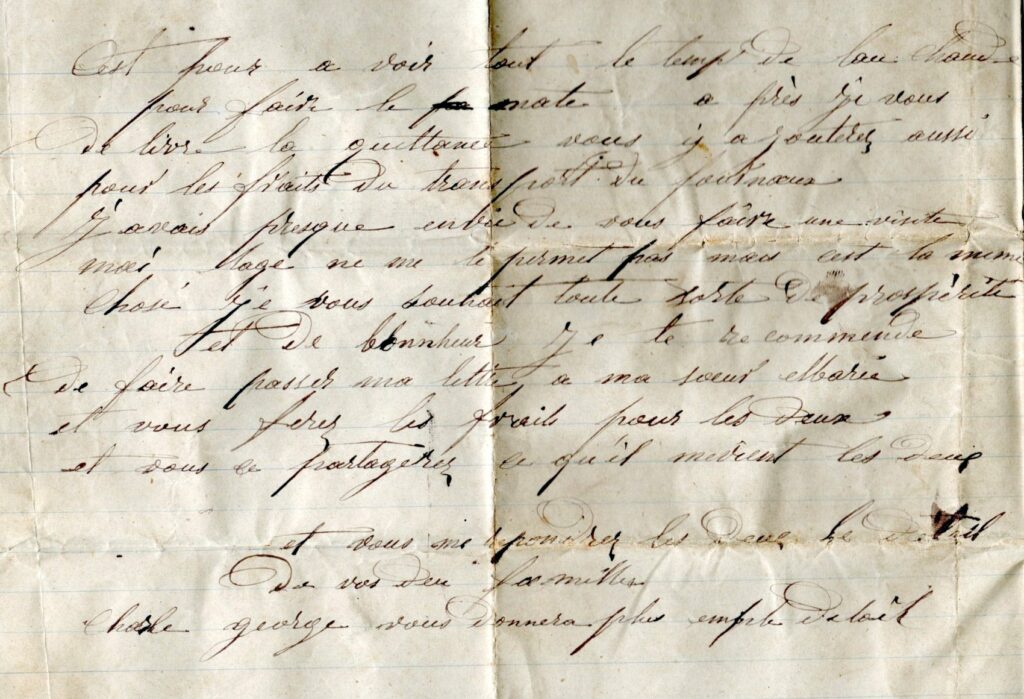 C'est pour a voir tout le temp de lau chaude
pour faire le mate a près je vous
de livre la quittance vous y a jouterez aussi
pour les frais du transport du journaux
J'avais presque envie de vous faire une visite
mai l'age ne me le permet pas mais c'est la meme
chose je vous souhait toute sorte de prospérité
et de bonnheur je te recommende
de faire passer ma lettre a ma soeur Marie
et vous ferez les frais pour les deux
et vous ce partagerez ce qu'il me vient les deux
et vous me reponderez les deux le detail
de vos deu familles
Charle george vous donnera plus emple detail